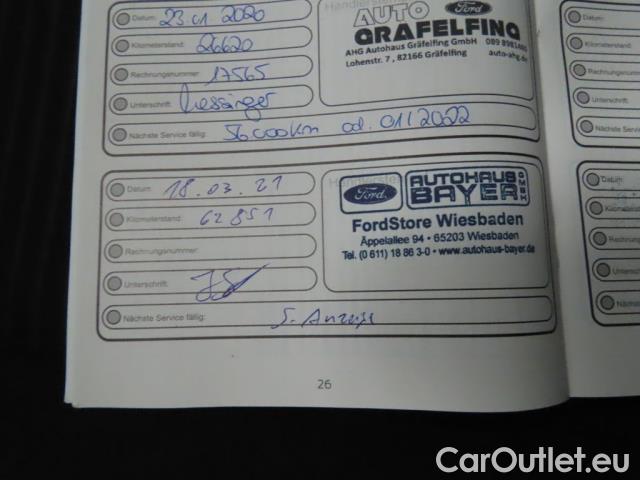 Datum: 23 01 2020
Kilometerstand: 26620
Rechnungsnummer: 17565
Unterschrift:
Nächste Service fällig: 56000km od. 01/2022
Händlerstempel
AUTO Ford
GRÄFELFING
AHG Autohaus Gräfelfing GmbH 089 8981460
Lohenstr. 7, 82166 Gräfelfing auto-ahg.de
Datum: 18.03.21
Kilometerstand: 62851
Rechnungsnummer:
Unterschrift:
Nächste Service fällig: S. Anzeige
Ford AUTOHAUS BAYER GMBH
FordStore Wiesbaden
Äppelallee 94 • 65203 Wiesbaden
Tel. (0 611) 18 86 3-0 • www.autohaus-bayer.de
26
Datum:
Kilometerstand:
Rechnungsnummer
Unterschrift:
Nächste Se
Datum:
Kilometerstan
Rechnungs
Unterschri
Nächst
CarOutlet.eu